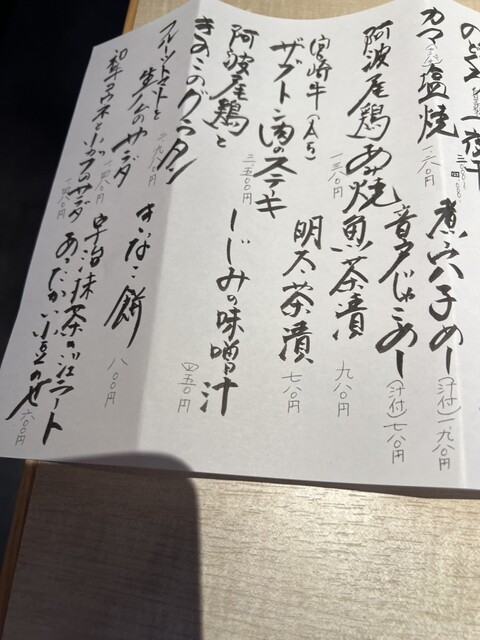 のどぐろ一夜干
三、〇〇〇〜四、〇〇〇
カマ塩焼
一、二八〇円
阿波尾鶏あみ焼
一、三八〇円
宮崎牛(A5)
ザブトン肉のステーキ
三、五〇〇円
阿波尾鶏と
きのこのグラタン
フルーツトマトと
生ハムのサラダ
一、四八〇円
小カブのサラダ
一、四八〇円
煮穴子めし
(汁付)一、九八〇円
音戸じゃこめし
(汁付)七八〇円
魚茶漬
九八〇円
明太茶漬
七八〇円
しじみの味噌汁
四五〇円
きなこ餅
八〇〇円
宇治抹茶のジェラート
あたたかい小豆のせ
六〇〇円